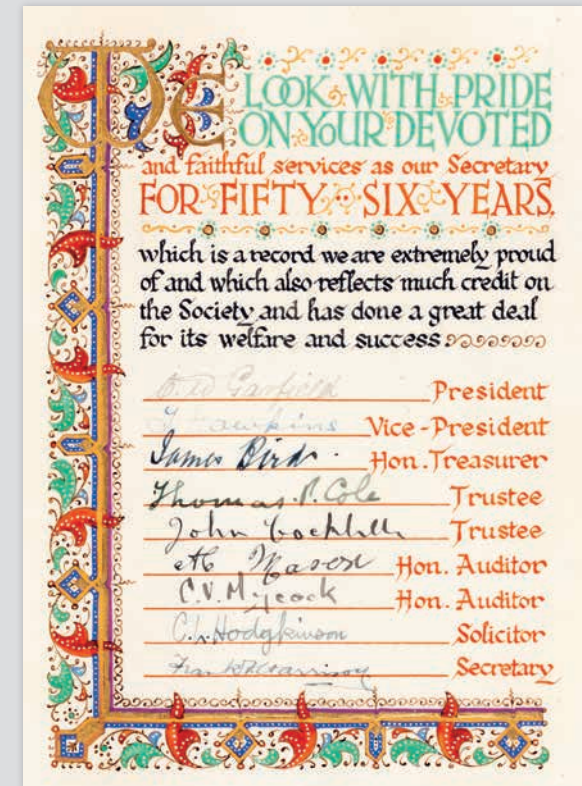 WE LOOK WITH PRIDE
ON YOUR DEVOTED
and faithful services as our Secretary
FOR FIFTY SIX YEARS,
which is a record we are extremely proud
of and which also reflects much credit on
the Society and has done a great deal
for its welfare and success
Garfield President
Hawkins Vice-President
James Bird Hon. Treasurer
Thomas. P. Cole Trustee
John Trustee
Mason Hon. Auditor
C.V. Mycock Hon. Auditor
Hodgkinson Solicitor
Frank Harrison Secretary